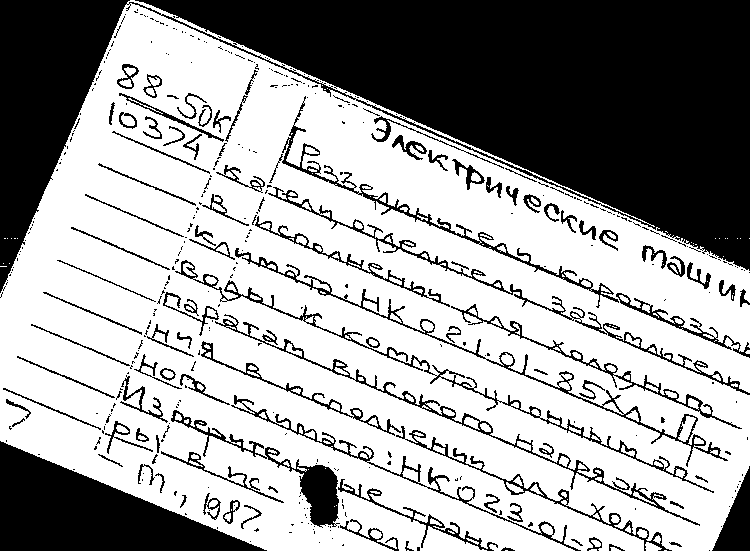 88-50К
10374
Электрические машин
[Разъединители, короткозамы
катели, отделители, заземлители
в исполнении для холодного
климата: НК 02.1.01-85ХЛ; При-
воды к коммутационным ап-
паратам высокого напряже-
ния в исполнении для холод-
ного климата: НК 02.3.01-85
Измерительные транс
ры в ис- полн
М., 1987.
7